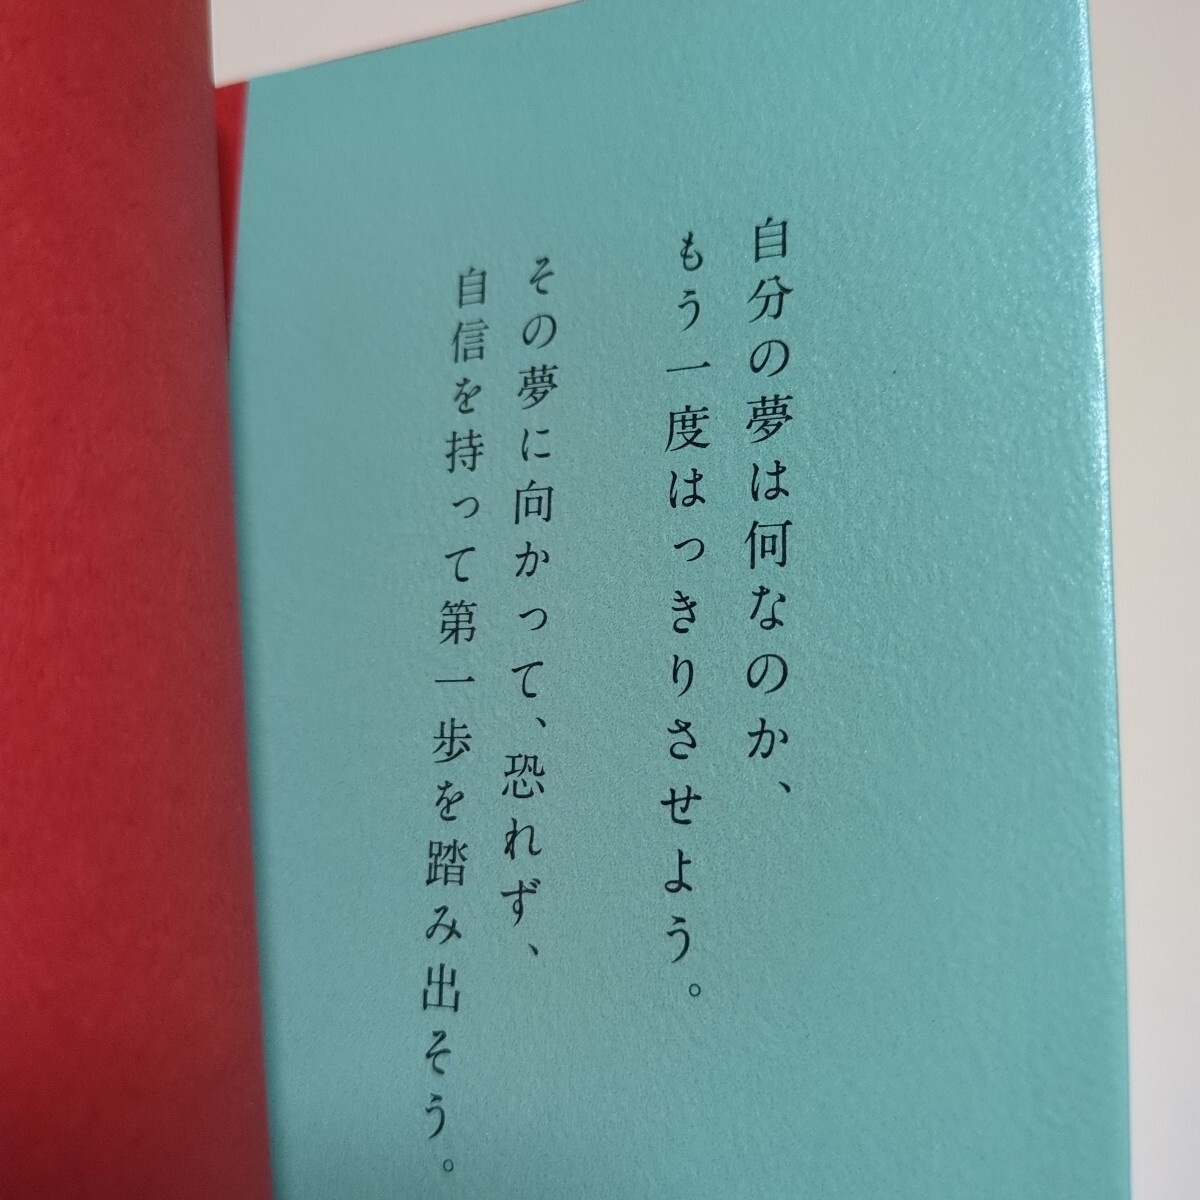 自分の夢は何なのか、
もう一度はっきりさせよう。
その夢に向かって、恐れず、
自信を持って第一歩を踏み出そう。